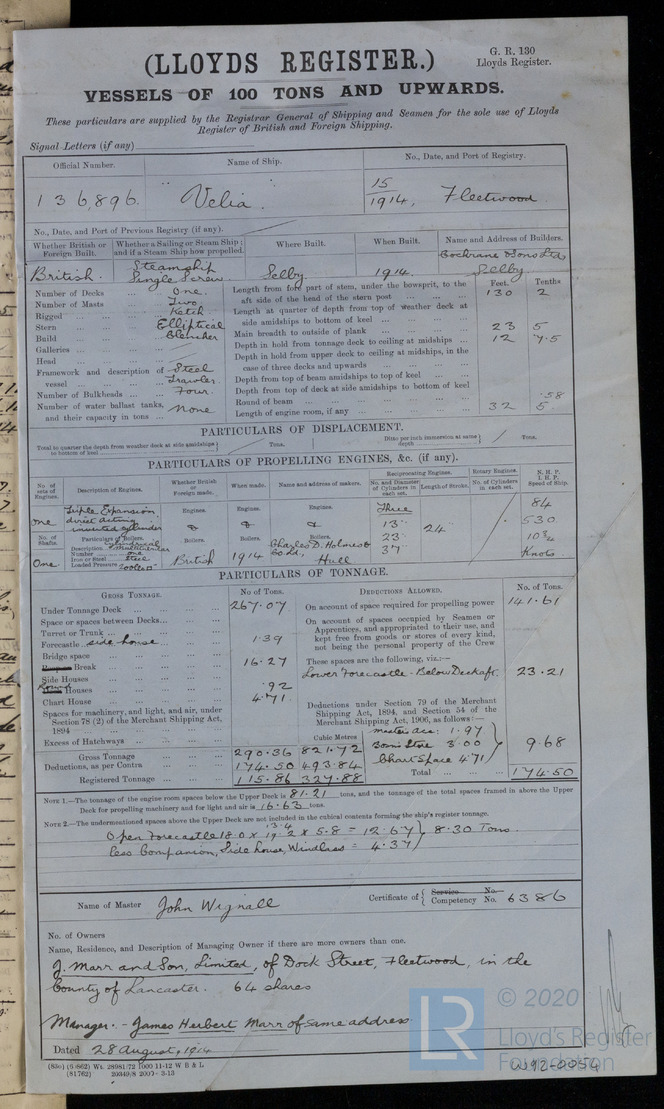 (LLOYDS REGISTER.)
G. R. 130
Lloyds Register.
VESSELS OF 100 TONS AND UPWARDS.
These particulars are supplied by the Registrar General of Shipping and Seamen for the sole use of Lloyds
Register of British and Foreign Shipping.
Signal Letters (if any)
Official Number. Name of Ship. No., Date, and Port of Registry.
136,896. "Velia". 15/1914, Fleetwood.
No., Date, and Port of Previous Registry (if any).
Whether British or Foreign Built. Whether a Sailing or Steam Ship; and if a Steam Ship how propelled. Where Built. When Built. Name and Address of Builders.
British. Steamship Single Screw. Selby. 1914. Cochrane & Sons Ltd Selby.
Number of Decks ... One.
Number of Masts ... Two
Rigged ... Ketch
Stern ... Elliptical
Build ... Clencher
Galleries ...
Head ...
Framework and description of vessel ... Steel Trawler.
Number of Bulkheads ... Four.
Number of water ballast tanks, and their capacity in tons ... None
Feet. Tenths
Length from fore part of stem, under the bowsprit, to the aft side of the head of the stern post ... 130 2
Length at quarter of depth from top of weather deck at side amidships to bottom of keel ...
Main breadth to outside of plank ... 23 5
Depth in hold from tonnage deck to ceiling at midships ... 12 7.5
Depth in hold from upper deck to ceiling at midships, in the case of three decks and upwards ...
Depth from top of beam amidships to top of keel ...
Depth from top of deck at side amidships to bottom of keel
Round of beam ... .58
Length of engine room, if any ... 32 5
PARTICULARS OF DISPLACEMENT.
Total to quarter the depth from weather deck at side amidships to bottom of keel Tons. Ditto per inch immersion at same depth Tons.
PARTICULARS OF PROPELLING ENGINES, &c. (if any).
No. of sets of Engines. Description of Engines. Whether British or Foreign made. When made. Name and address of makers. Reciprocating Engines. No. and Diameter of Cylinders in each set. Length of Stroke. Rotary Engines. No. of Cylinders in each set. N. H. P. I. H. P. Speed of Ship.
One Triple Expansion direct acting inverted cylinder Engines. Engines. Engines. Three 13" 23" 37" 24" 84 530
No. of Shafts. Particulars of Boilers. Boilers. Boilers. Boilers. 10½ Knots
One Description Cylindrical Multitubular
Number one
Iron or Steel Steel
Loaded Pressure 200 lbs
British 1914 Charles D. Holmes & Co Ld, Hull
PARTICULARS OF TONNAGE.
GROSS TONNAGE. No. of Tons. DEDUCTIONS ALLOWED. No. of Tons.
Under Tonnage Deck ... 267.07
Space or spaces between Decks ...
Turret or Trunk ...
Forecastle side house ... 1.39
Bridge space ...
Break ... 16.27
Side Houses ...
Round Houses ... .92
Chart House ... 4.71
Spaces for machinery, and light, and air, under Section 78 (2) of the Merchant Shipping Act, 1894
Excess of Hatchways ...
Cubic Metres
Gross Tonnage 290.36 821.72
Deductions, as per Contra 174.50 493.84
Registered Tonnage 115.86 327.88
On account of space required for propelling power 141.61
On account of spaces occupied by Seamen or Apprentices, and appropriated to their use, and kept free from goods or stores of every kind, not being the personal property of the Crew
These spaces are the following, viz.:—
Lower Forecastle - Below Deck aft. 23.21
Deductions under Section 79 of the Merchant Shipping Act, 1894, and Section 54 of the Merchant Shipping Act, 1906, as follows:—
Masters acc: 1.97
Bosn's Store 3.00
Chart Space 4.71
9.68
Total ... 174.50
NOTE 1.—The tonnage of the engine room spaces below the Upper Deck is 81.21 tons, and the tonnage of the total spaces framed in above the Upper
Deck for propelling machinery and for light and air is 16.63 tons.
NOTE 2.—The undermentioned spaces above the Upper Deck are not included in the cubical contents forming the ship's register tonnage.
Open Forecastle 18.0 x x 5.8 = 12.67 } 8.30 Tons.
less Companion, Side house, Windlass = 4.37
Name of Master John Wignall Certificate of { Service No. Competency No. 6386
No. of Owners
Name, Residence, and Description of Managing Owner if there are more owners than one.
J. Marr and Son, Limited, of Dock Street, Fleetwood, in the
County of Lancaster. 64 shares
Manager. - James Herbert Marr of same address.
Dated 28 August, 1914
(83o) (90862) Wt. 28981/72 1000 11-12 W B & L
(81762) 20349/8 2000 3-13
LR © 2020
Lloyd's Register
Foundation
W92-0054